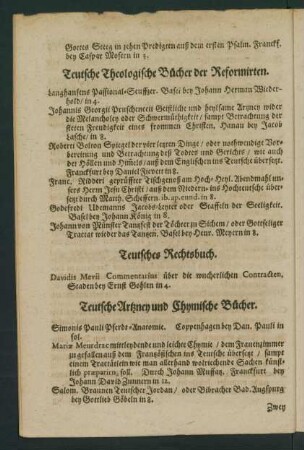 Gottes Steeg in zehen Predigten auß dem ersten Psalm. Franckf.
bey Caspar Mosern in 8.
Teutsche Theologische Bücher der Reformirten.
Langhansens Passional-Seuffzer. Bey Johann Herman Wieder-
hold/ in 4.
Johannis Georgii Peuschenetti Geistliche und heylsame Artzney wider
die Melancholey oder Schwermüthigkeit/ sampt Betrachtung der
steten Freudigkeit eines frommen Christen, Hanau bey Jacob
Lasche/ in 8.
Robert Bolton Spiegel der vier letzten Dinge/ oder nothwendige Vor-
bereitung und Betrachtung deß Todtes und Gerichts/ wie auch
der Höllen und Himels/ auß dem Englischen ins Teutsche übersetzt.
Franckfurt bey Daniel Fievert in 8.
Franc. Ridderi geprüffter Tischgenoß am Hoch-Heyl. Abendmahl un-
sers Herrn Jesu Christi/ auß dem Niedern- ins Hochteutsche über-
setzt durch Matth. Scheffern. ib. ap. eund. in 8.
Godefridi Udemanns Jacobs-Leyter oder Staffeln der Seeligkeit.
Basel bey Johann König in 8.
Johann von Münster Tanzfest der Töchter zu Sichem/ oder Gottseliger
Tractat wieder das Tantzen. Basel bey Henr. Meyern in 8.
Teutsches Rechtsbuch.
Davidis Mevii Commentarius über die wucherlichen Contracten,
Staden bey Ernst Gohlen in 4.
Teutsche Artzney und Chymische Bücher.
Simonis Pauli Pferde-Anatomie. Coppenhagen bey Dan. Pauli in
fol.
Mariæ Meurdrac mitleydende und leichte Chymie/ dem Frauenzimmer
zu gefallen auß dem Frantzösischen ins Teutsche übersetzt/ sampt
einem Tractätlein wie man allerhand wolriechende Sachen künst-
lich præpariren, soll. Durch Johann Muffay. Franckfurt bey
Johann David Zunnern in 12.
Salom. Braunen Teutscher Jordan/ oder Bibracher Bad. Augspurg
bey Gottlieb Göbeln in 8.
Zwey